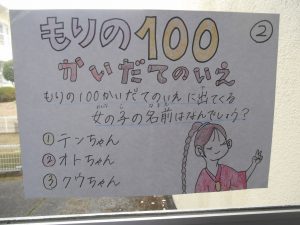 もりの100
②
かいだてのいえ
もりの100かいだてのいえに出てくる
女の子の名前はなんでしょう?
①テンちゃん
②オトちゃん
③クウちゃん